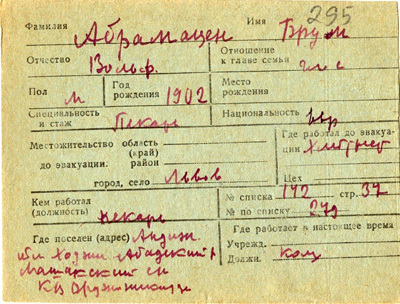 295
Фамилия Абрамацен Имя Брум
Отчество Вольф. Отношение к главе семьи
Пол М Год рождения 1902 Место рождения
Специальность и стаж Пекарь Национальность евр
Местожительство область (край) район до эвакуации.
город, село Львов
Где работал до эвакуации
Цех
Кем работал (должность) пекарь
№ списка 172 стр. 37
№ по списку 279
Где поселен (адрес) Андиж
обл Ходжи Абадский р
к/з Орджоникидзе
Где работает в настоящее время
Учрежд.
Должн. колх